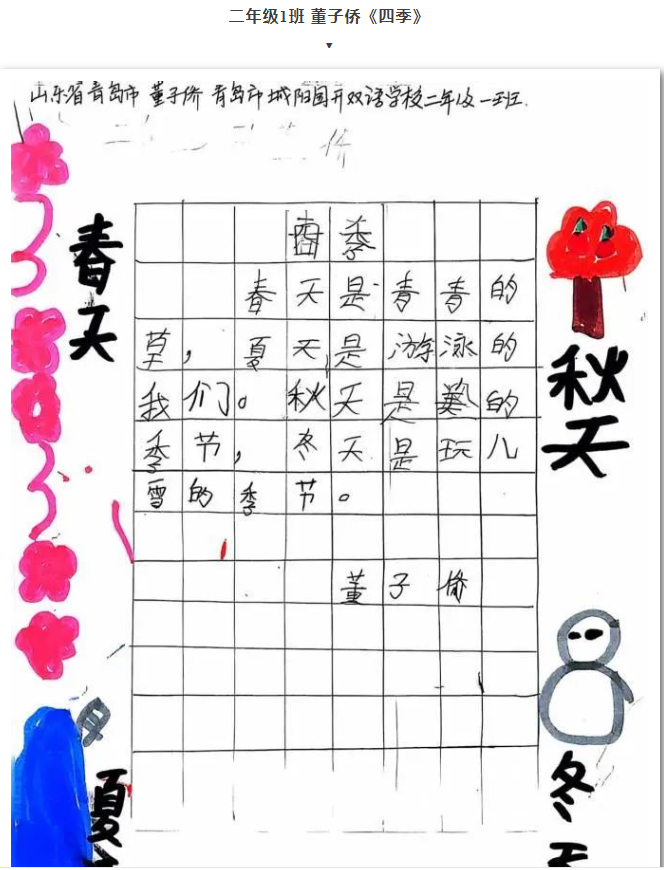 二年级1班 董子侨《四季》
山东省青岛市 董子侨 青岛市城阳国开双语学校二年级一班.
四季
春天是青青的
草，夏天是游泳的
我们。秋天是的
季节，冬天是玩儿
雪的季节。
董子侨
春天
秋天
夏
冬天